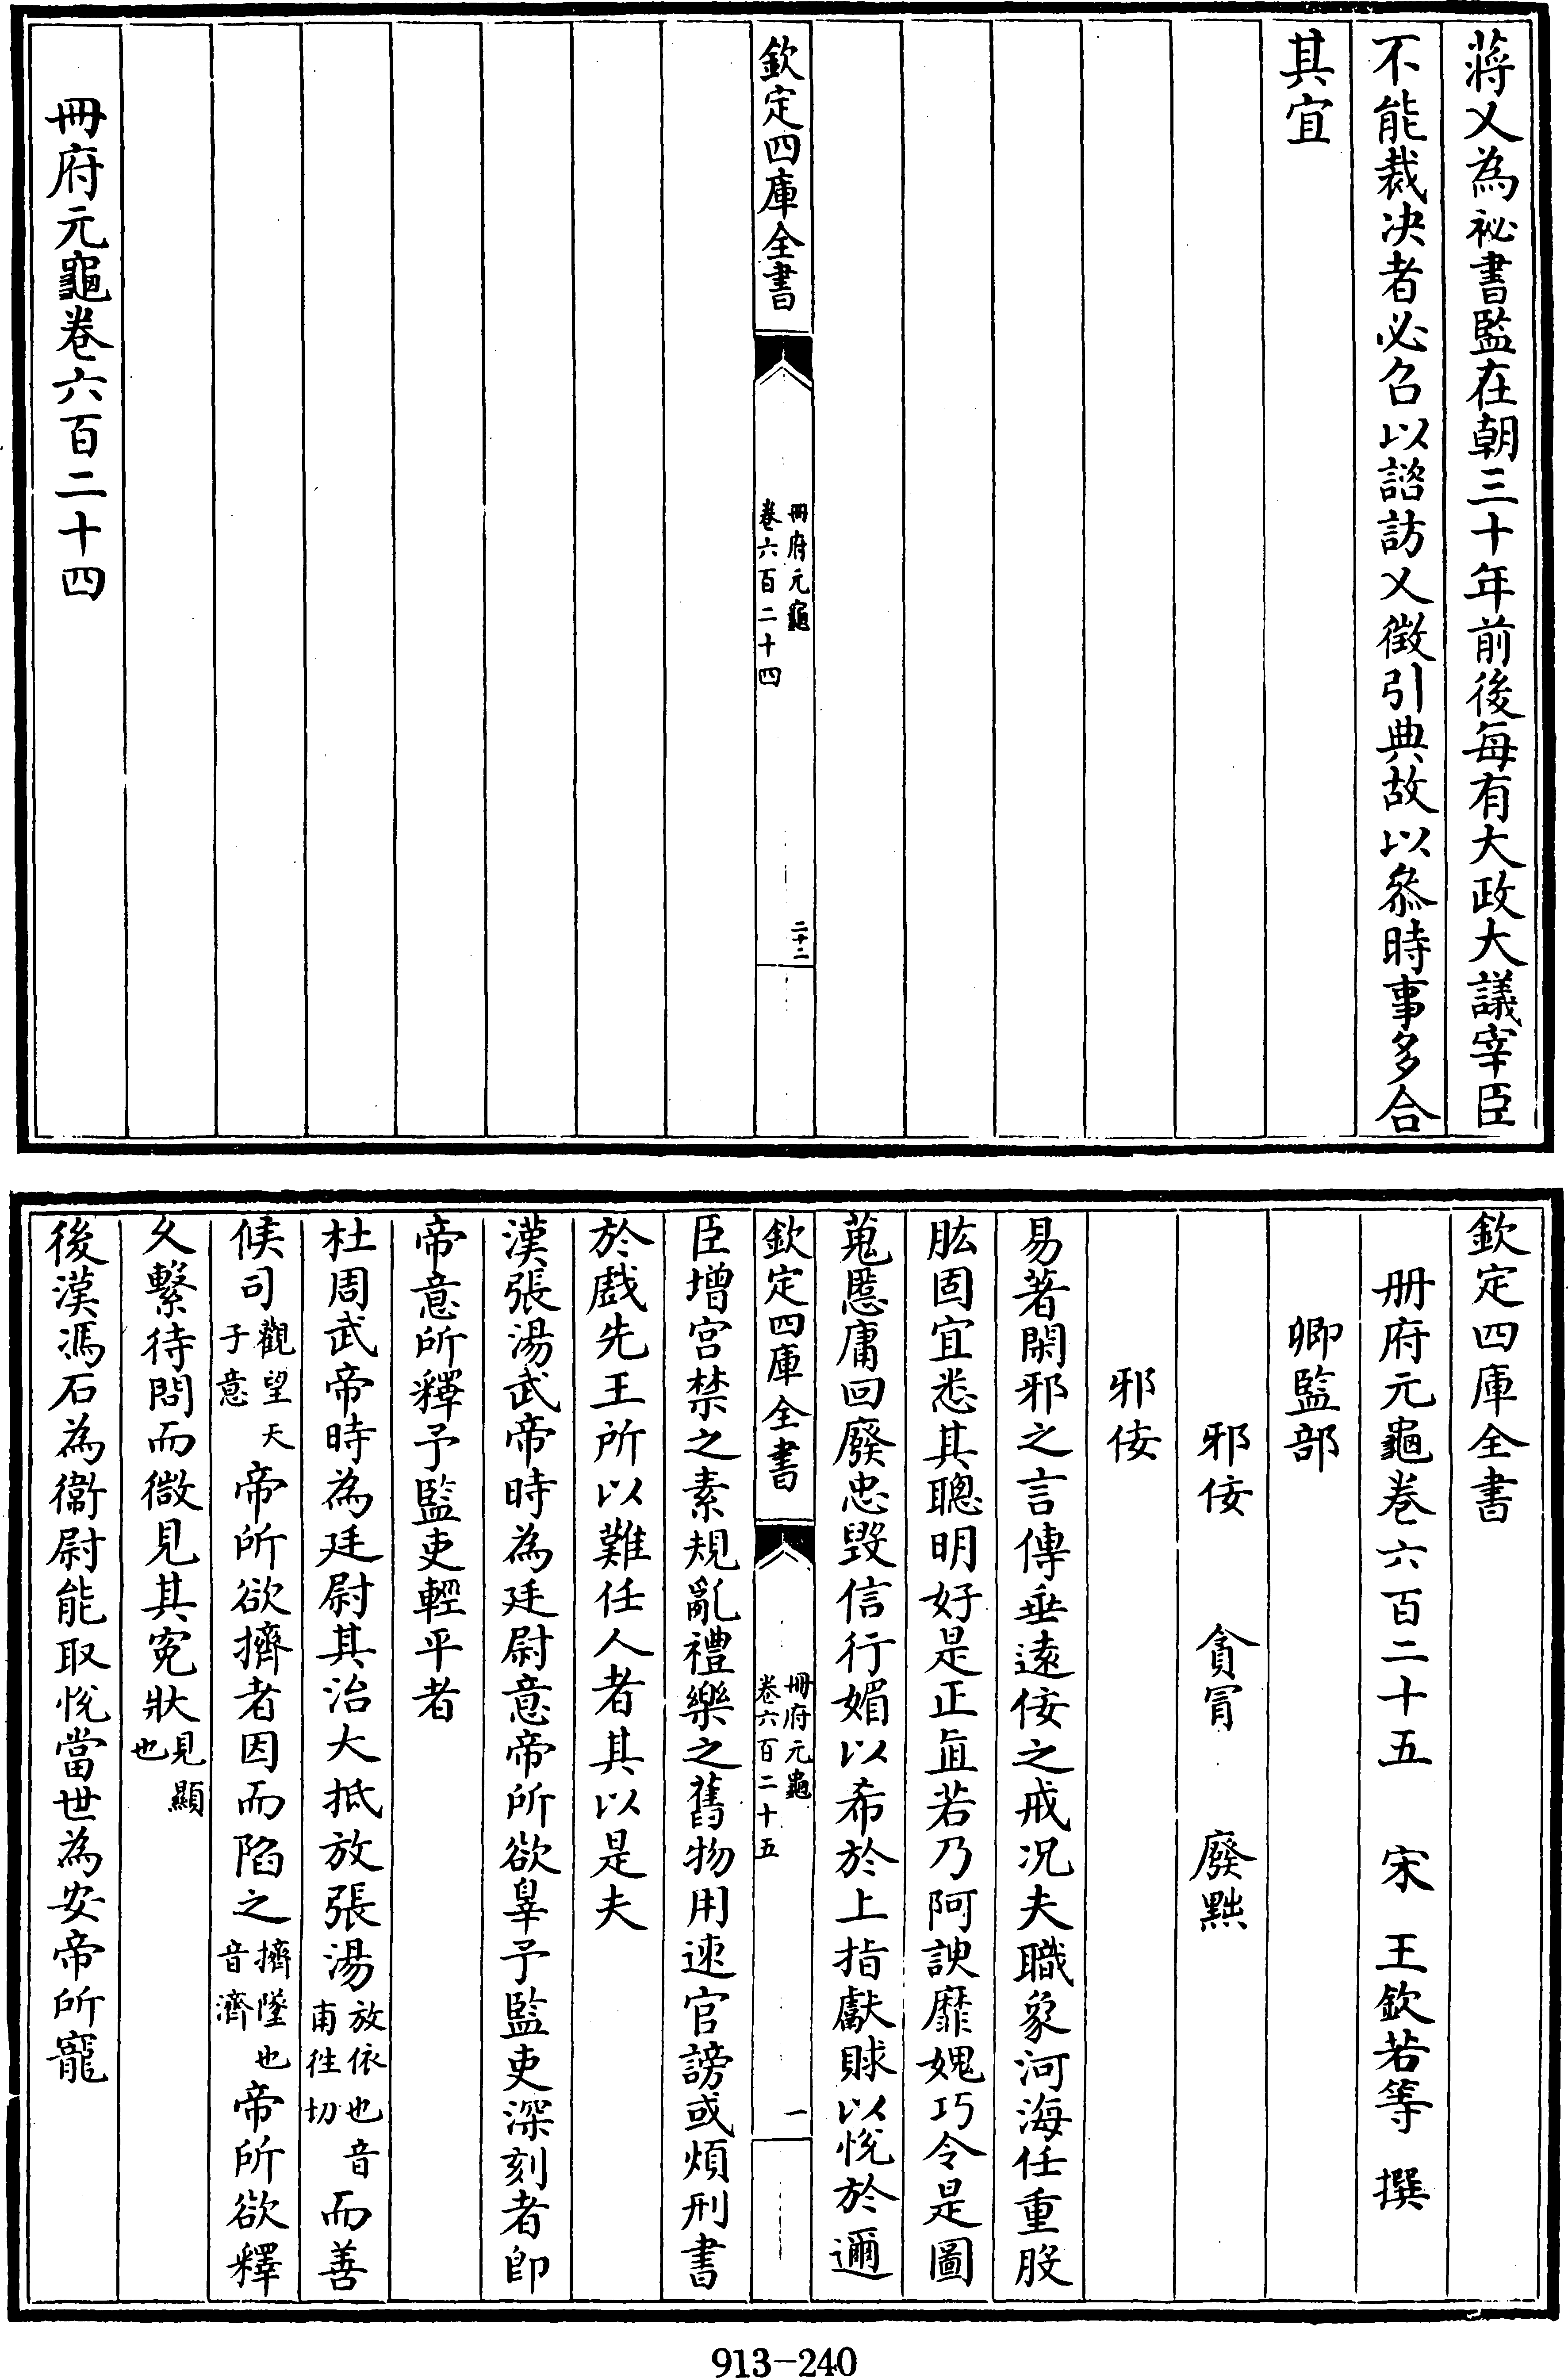 蔣乂為祕書監在朝三十年前後每有大政大議宰臣
不能裁決者必召以諮訪乂徵引典故以叅時事多合
其宜
欽定四庫全書
冊府元龜
卷六百二十四
二十二
冊府元龜卷六百二十四
欽定四庫全書
冊府元龜卷六百二十五 宋 王欽若等 撰
卿監部
邪佞 貪冒 廢黜
邪佞
易著閑邪之言傳垂遠佞之戒況夫職象河海任重股
肱固宜悉其聰明好是正直若乃阿諛靡媿巧令是圖
蒐慝庸回廢忠毀信行媚以希於上指獻賕以悅於邇
欽定四庫全書
冊府元龜
卷六百二十五
一
臣增宮禁之素規亂禮樂之舊物用速官謗或煩刑書
於戲先王所以難任人者其以是夫
漢張湯武帝時為廷尉意帝所欲辠予監吏深刻者即
帝意所釋予監吏輕平者
杜周武帝時為廷尉其治大抵放張湯放依也音甫徃切而善
候司觀望天子意帝所欲擠者因而陷之擠墜也音濟帝所欲釋
久繫待問而微見其寃狀見顯也
後漢馮石為衞尉能取悅當世為安帝所寵
913-240